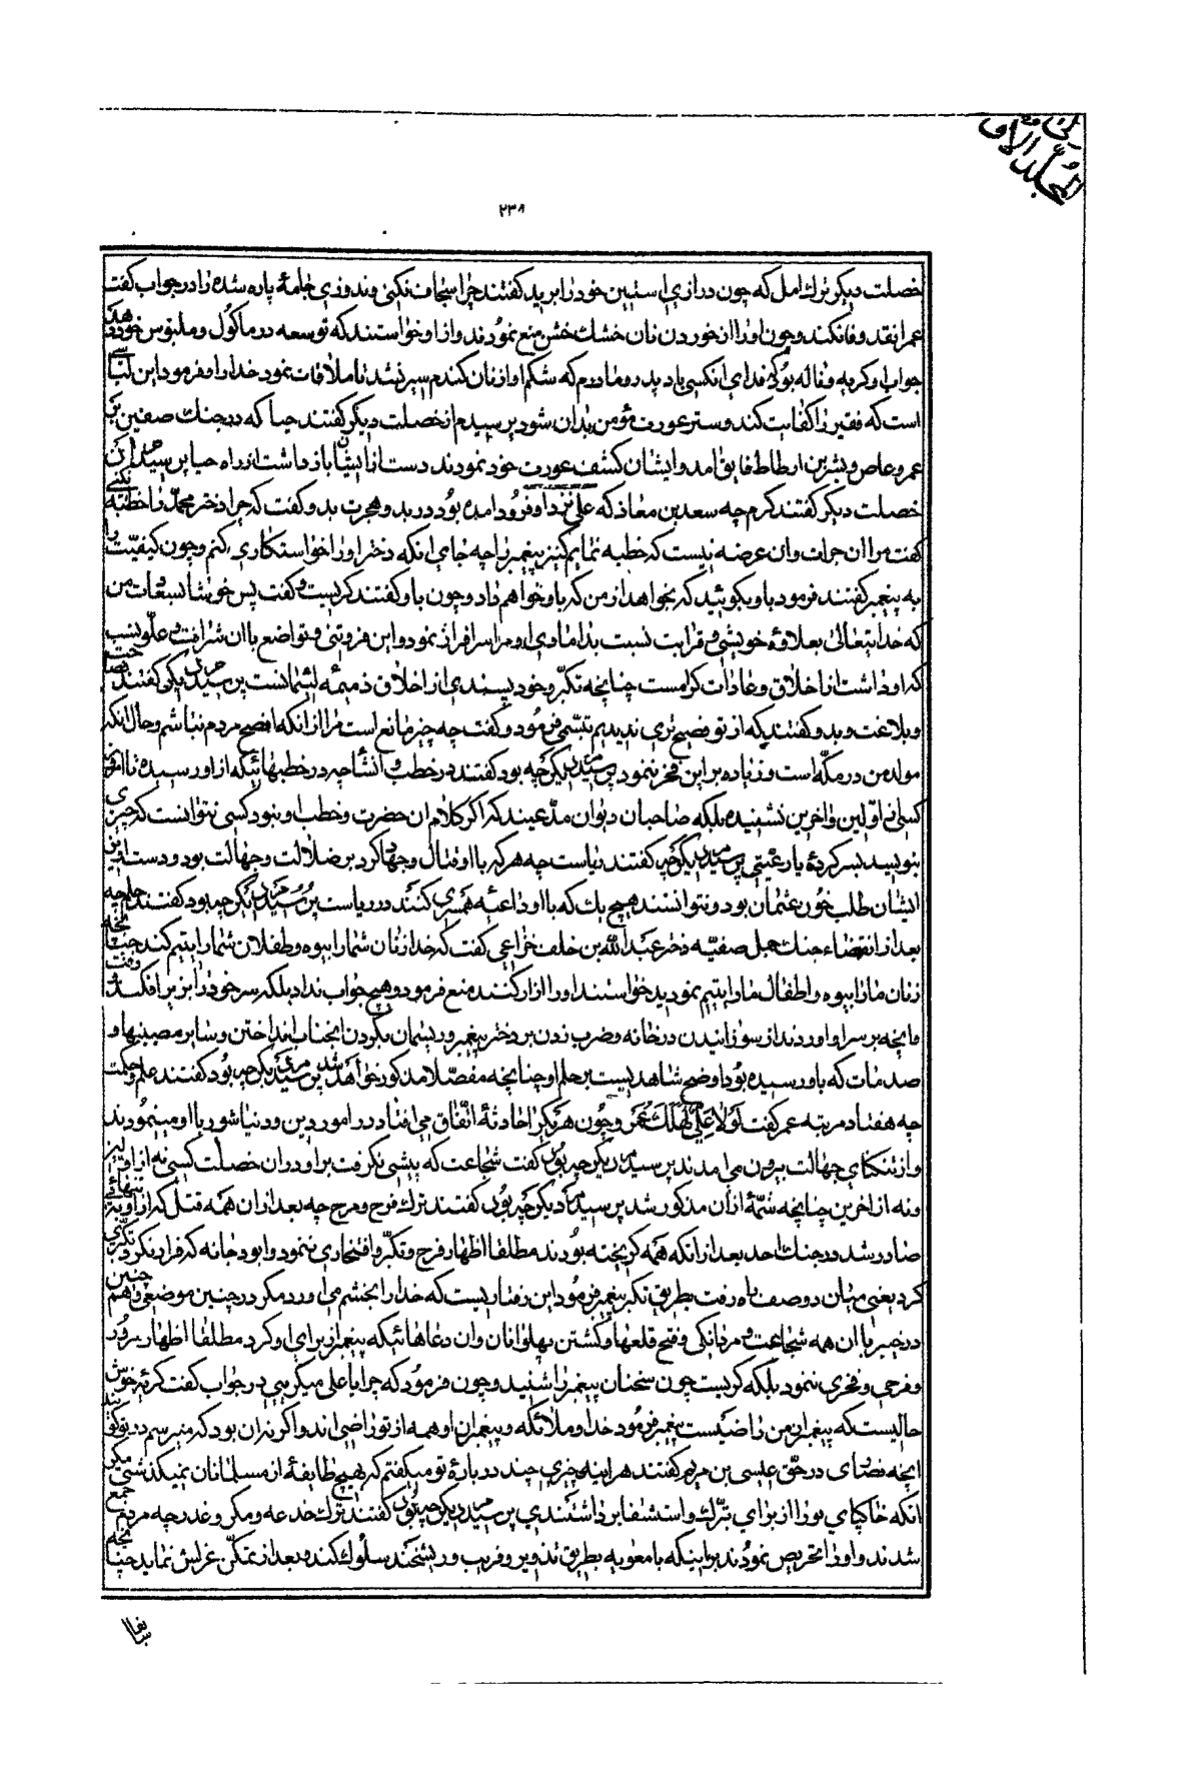 المجلد الاول
٢٣٨
خصلت دیکر ترك امل که چون درازی استین خود را برید کفتند چرا سجاف نکنی و ندوزی جامهٔ پاره شده را در جواب کفت
عمر انقدر وفا نکند و چون او را از خوردن نان خشك خشن منع نمودند و از او خواستند که توسعه در ماکول و ملبوس خود دهد
جواب او کریه و ناله بود که فدای انکسی باد پدر و مادرم که شکم او از نان کندم سیر نشد تا ملاقات نمود خدا را و فرمود این لباسی
است که فقیر را کفایت کند و ستر عورت مؤمن بدان شود پرسیدم از خصلت دیکر کفتند حیا که در جنك صفین بر
عمرو عاص و بشر بن ارطاط فایق امد و ایشان کشف عورت خود نمودند دست از ایشان باز داشت از راه حیا پرسیدم از
خصلت دیکر کفتند کرم چه سعد بن معاذ که علی نزد او فرود امده بود در بدو هجرت بدو کفت که چرا دختر محمد را خطبه نکنی
کفت مرا ان جرات وان عرضه نیست که خطبه نمایم کنیز پیغمبر را چه جای انکه دختر او را خواستکاری کنم و چون کیفیت را
به پیغمبر کفتند فرمود باو بکوئید که بخواهد از من که باو خواهم داد و چون باو کفتند کریست و کفت پس خوشا بسعادت من
که خدایتعالی بعلاوهٔ خویشی و قرابت نسبت بدامادی او مرا سرافراز نمود و این فروتنی و تواضع باان شرافت و علو نسب
که او داشت از اخلاق و عادات کرامست چنانچه تکبر و خود پسندی از اخلاق ذمیمه لئیمانست پرسیدم از دیکری کفتند فصاحت
و بلاغت و بدو کفتند که از تو فصیح تری ندیدیم تبسمی فرمود و کفت چه چیز مانع است مرا از انکه افصح مردم نباشم و حال انکه
مولد من در مکه است و زیاده بر این فخر ننمود پرسیدم دیکر چه بود کفتند در خطب و انشا چه در خطبهائیکه از او رسیده تا امروز
کسی نه اولین و اخرین نشنیده بلکه صاحبان دیوان مدعیند که اکر کلام ان حضرت و خطب او نبود کسی نتوانست که چیزی
بنویسد بسرکردهٔ یا رعیتی پرسیدم دیکر چه کفتند ریاست چه هر که با او قتال و جهاد کرد بر ضلالت و جهالت بود و دست اویز
ایشان طلب خون عثمان بود و نتوانستند هیچ یك که با او داعیه همسری کنند در ریاست پرسیدم دیکر چه بود کفتند حلم چه
بعد از انقضاء جنك جمل صفیه دختر عبدالله بن خلف خزاعی کفت که خدا زنان شما را بیوه و طفلان شما را یتیم کند چنانچه
زنان ما را بیوه و اطفال ما را یتیم نمودید خواستند او را ازار کنند منع فرمود و هیچ جواب نداد بلکه سر خود را بزیر افکند و رفت
و انچه بر سر او اوردند از سوزانیدن در خانه و ضرب زدن بر دختر پیغمبر و ریسمان بکردن انجناب انداختن و سایر مصیبتها و
صدمات که باو رسیده بود اوضح شاهدیست بر حلم او چنانچه مفصلا مذکور خواهد شد پرسیدم دیکر چه بود کفتند علم و حکمت
چه هفتاد مرتبه عمر کفت لولا علی لهلك عمر و چون هر یك را حادثهٔ اتفاق می افتاد در امور دین و دنیا شور با او مینمودند
و از تنکنای جهالت بیرون می امدند پرسیدم دیکر چه بود کفت شجاعت که پیشی نکرفت بر او در ان خصلت کسی نه از اولین
و نه از اخرین چنانچه شمهٔ از ان مذکور شد پرسیدم دیکر چه بود کفتند ترك فرح و مرح چه بعد از ان همه قتل که از او به تنهائی
صادر شد در جنك احد بعد از انکه همه کریخته بودند مطلقا اظهار فرح و تکبر و افتخاری ننمود و ابودجانه که فرار نکرد تکبری
کرد یعنی میان دو صف راه رفت بطریق تکبر پیغمبر فرمود این رفتاریست که خدا را بخشم می اورد مکر در چنین موضعی و هم چنین
در خیبر باان همه شجاعت و مردانکی و فتح قلعها و کشتن پهلوانان وان دعاهائیکه پیغمبر از برای او کرد مطلقا اظهار سرور
و فرحی و فخری ننمود بلکه کریست چون سخنان پیغمبر را شنید و چون فرمود که چرا یا علی میکریی در جواب کفت کریهٔ خوش
حالیست که پیغمبر از من راضیست پیغمبر فرمود خدا و ملائکه و پیغمبران او همه از تو راضی اند و اکر نه ان بود که میترسم در تو کویند
انچه نصاری در حق عیسی بن مریم کفتند هر اینه چیزی چند در بارهٔ تو میکفتم که هیچ طایفهٔ از مسلمانان نمیکذشتی مکر
انکه خاکپای تو را از برای تبرك و استشفا بر داشتندی پرسیدم دیکر چه بود کفتند ترك خدعه و مکر و غدر چه مردم جمع
شدند و او را تحریص نمودند بر اینکه با معویه بطریق تذویر و فریب و ریشخند سلوك کند و بعد از تمکن عزلش نماید چنانچه